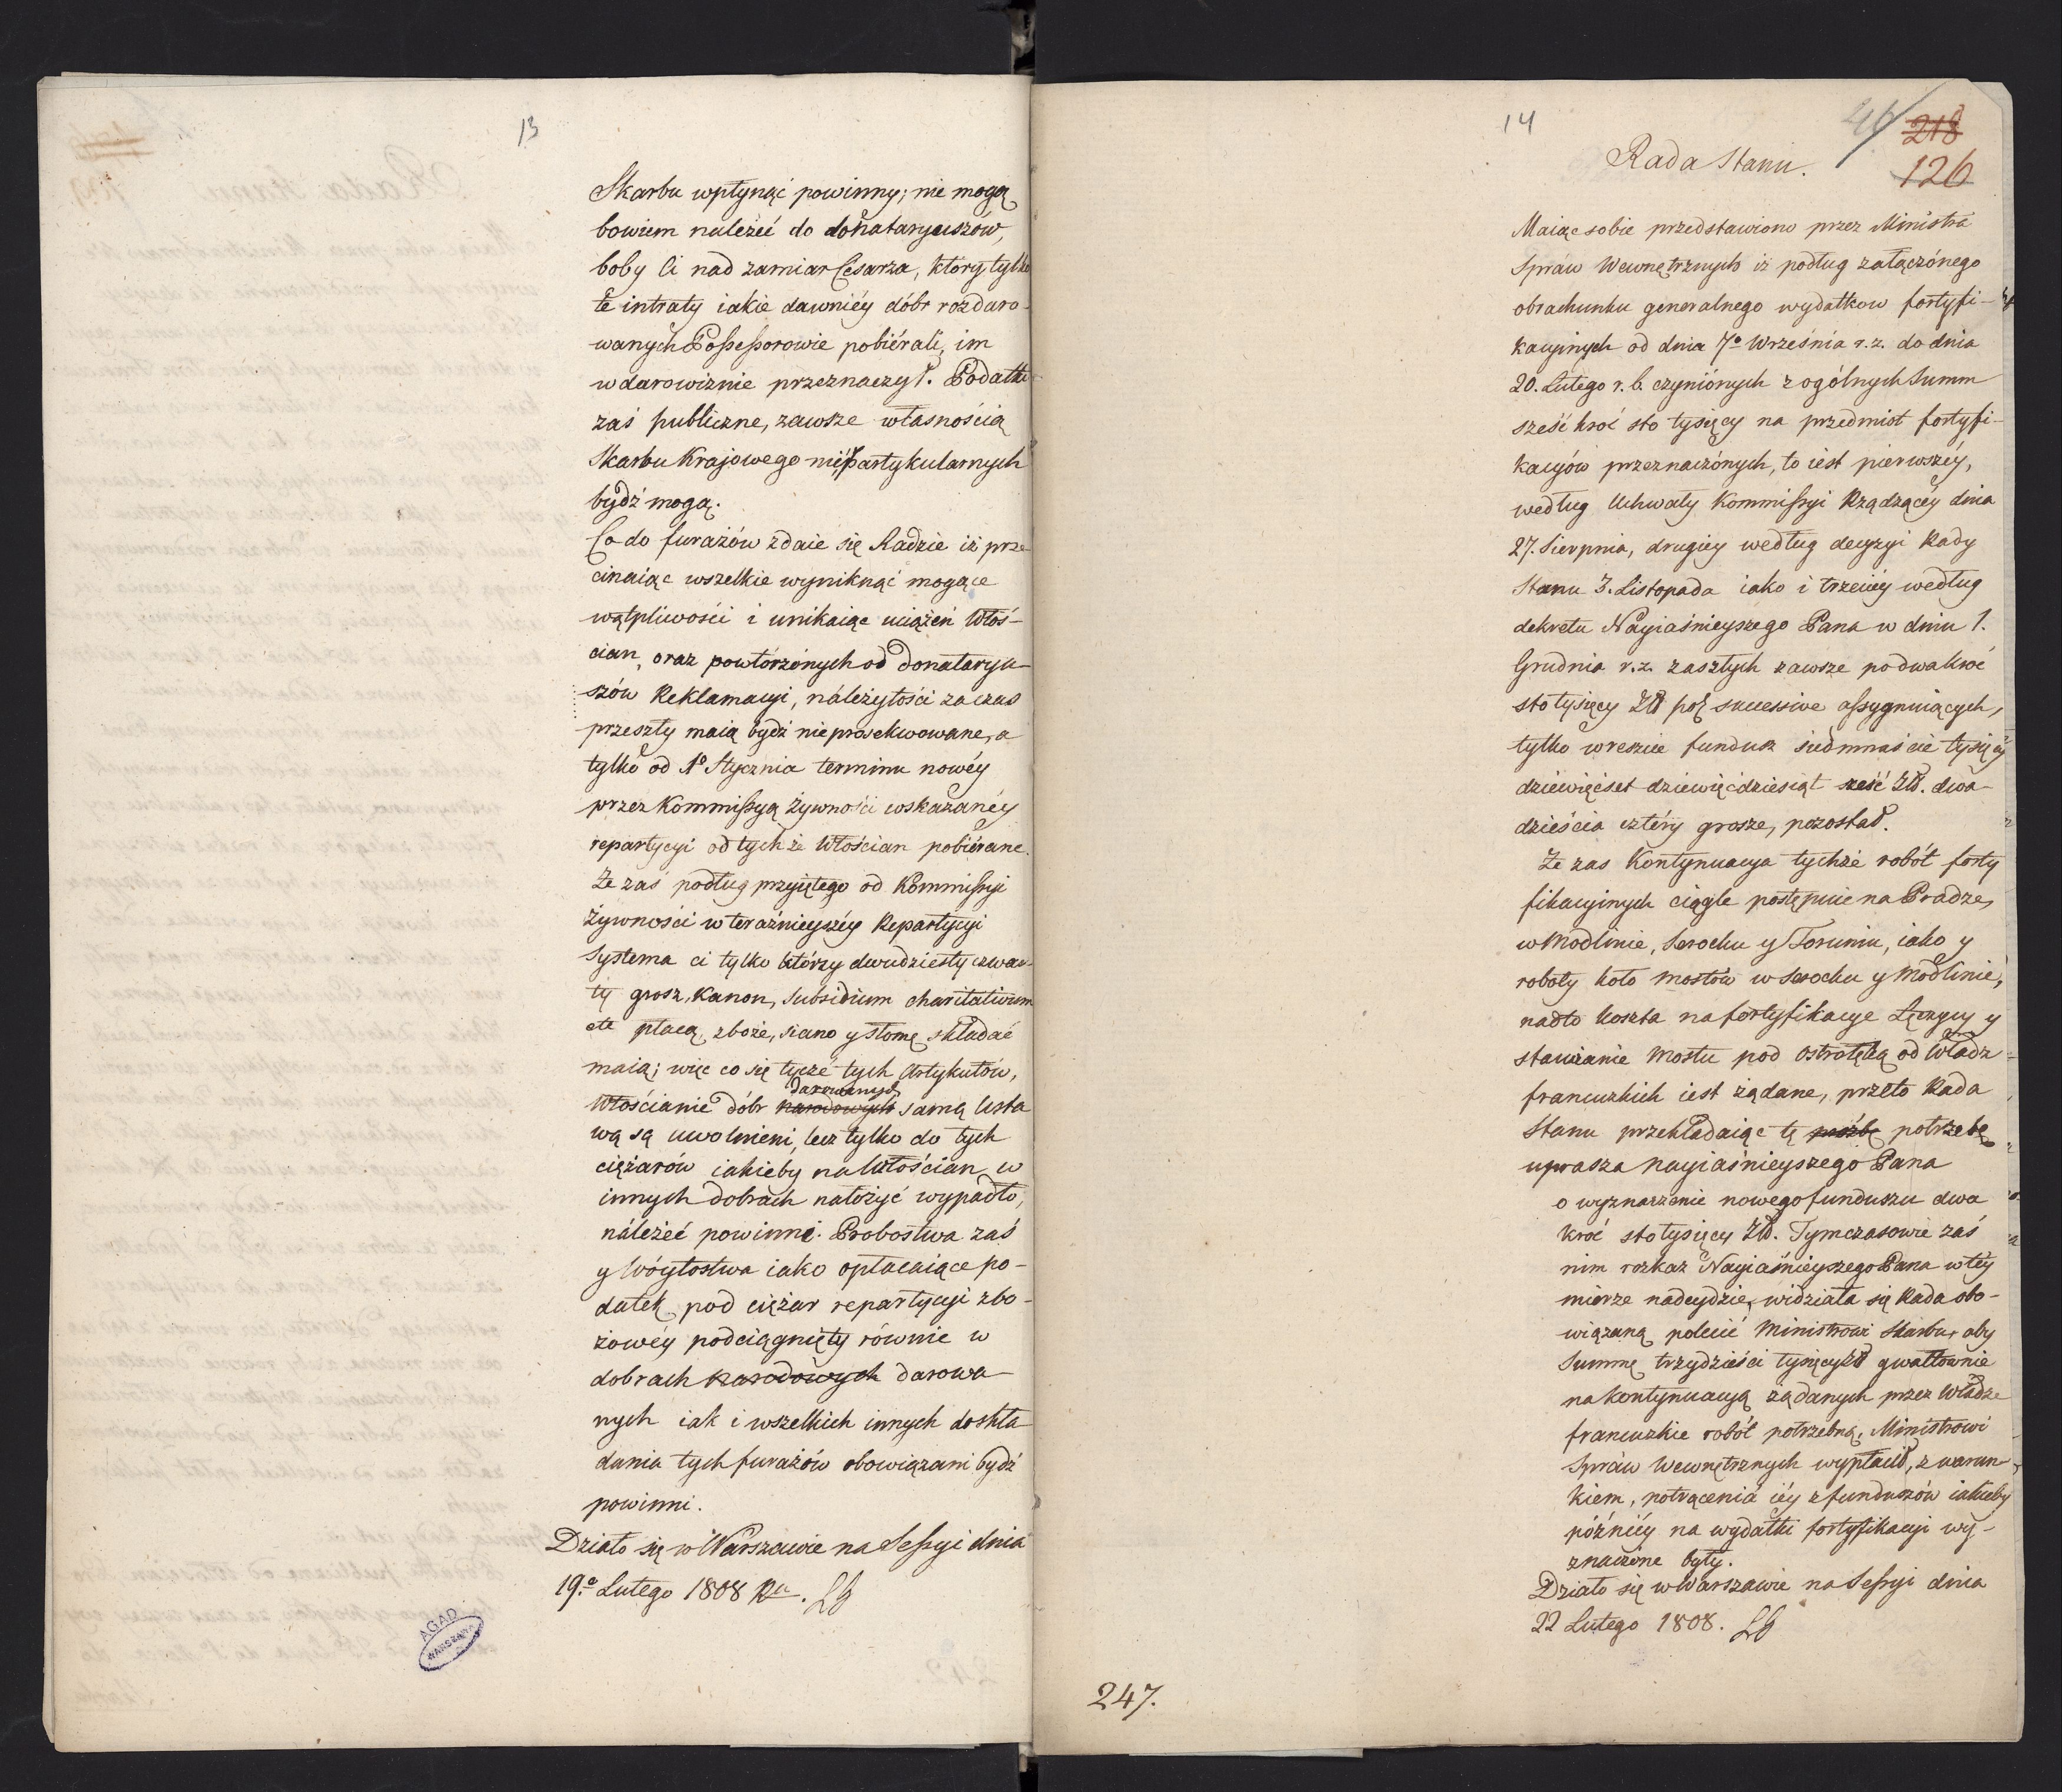 13
Skarbu wpłynąć powinny; nie mogą
bowiem należeć do donataryuszów,
boby Ci nad zamiar Cesarza, który tylko
te intraty iakie dawniéy dóbr rozdaro-
wanych Possessorowie pobiérali, im
w darowiznie przeznaczył. Podatki
zaś publiczne, zawsze własnością
Skarbu Krajowego nie partykularnych
bydź mogą.
Co do furażów zdaie się Radzie iż prze-
cinaiąc wszelkie wyniknąć mogące
wątpliwości i unikaiąc uciążeń Włoś-
cian, oraz powtórzónych od Donataryu-
szów Reklamacyi, należytości za czas
przeszły maią bydź nie prosekwowane, a
tylko od 1º Stycznia terminu nowéy
przez Kommissyą Żywności wskazanéy
repartycyi od tychże Włościan pobiérane.
Że zaś podług przyiętego od Kommissyi
Żywności w teraźnieyszéy Repartycyi
Systema ci tylko którzy dwudziesty czwar-
ty grosz, Kanon, Subsidium charitativum
etc płacą, zboże, siano y słomę składać
maią; więc co się tycze tych Artykułów,
darowanych
Włościanie dóbr narodowych samą Usta
wą są uwolnieni, lecz tylko do tych
ciężarów iakieby na Włościan w
innych dobrach nałożyć wypadło,
náleżeć powinni. Probostwa zaś
y Wóytostwa iako opłacaiące po-
datek pod ciężar repartycyi zbo-
żowéy podciągnięty równie w
dobrach narodowych darowa-
nych iak i wszelkich innych do skła
dania tych furażów obowiązani bydź
powinni.
Działo się w Warszawie na Sessyi dnia
19º Lutego 1808 Ru. LG
AGAD
WARSZAWA
14
46
218
126
Rada Stanu.
Maiąc sobie przedstawiono przez Ministra
Spraw Wewnętrznych iż podług załączónego
obrachunku generalnego wydatkow fortyfi-
kacyinych od dnia 7º Września r. z. do dnia
20. Lutego r. b. czyniónych z ogólnych Summ
sześć kroć sto tysięcy na przedmiot fortyfi-
kacyów przeznaczónych, to iest pierwszéy,
według Uchwały Kommissyi Rządzącéy dnia
27. Sierpnia, drugiey według decyzyi Rady
Stanu 3. Listopada iako i trzeciéy według
dekretu Nayiaśnieyszego Pana w dniu 1.
Grudnia r. z. zaszłych zawsze po dwakroć
sto tysięcy Zł pol successive assygnuiących,
tylko wreszcie fundusz siedmnaście tysięcy
dziewięćset dziewięćdziesiąt sześć Zł. dwa-
dzieścia cztéry grosze, pozostał.
Że zas Kontynuacya tychże robót forty
fikacyinych ciągle postępuie na Pradze,
w Modlinie, Serocku y Toruniu, iako y
roboty koło mostów w Serocku y Modlinie,
nadto koszta na fortyfikacye Łęczycy y
stawianie Mostu pod Ostrołęką od Władz
francuzkich iest żądane, przeto Rada
Stanu przekładaiąc tę prózbę potrzebę
uprasza Nayiaśnieyszego Pana
o wyznaczenie nowego funduszu dwa
kroć sto tysięcy Zł. Tymczasowie zaś
nim rozkaz Nayiaśnieyszego Pana w téy
mierze nadeydzie, widziała się Rada obo-
wiązaną polecić Ministrowi Skarbu, aby
Summę trzydzieści tysięcy Zł gwałtownie
na Kontynuacyą żądanych przez Władze
francuzkie robót potrzebną, Ministrowi
Spraw Wewnętrznych wypłacił, z warun-
kiem, potrącenia iéy z funduszów iakieby
późniéy na wydatki fortyfikacyi wy-
znaczone były.
Działo się w Warszawie na Sessyi dnia
22 Lutego 1808. LG
247.